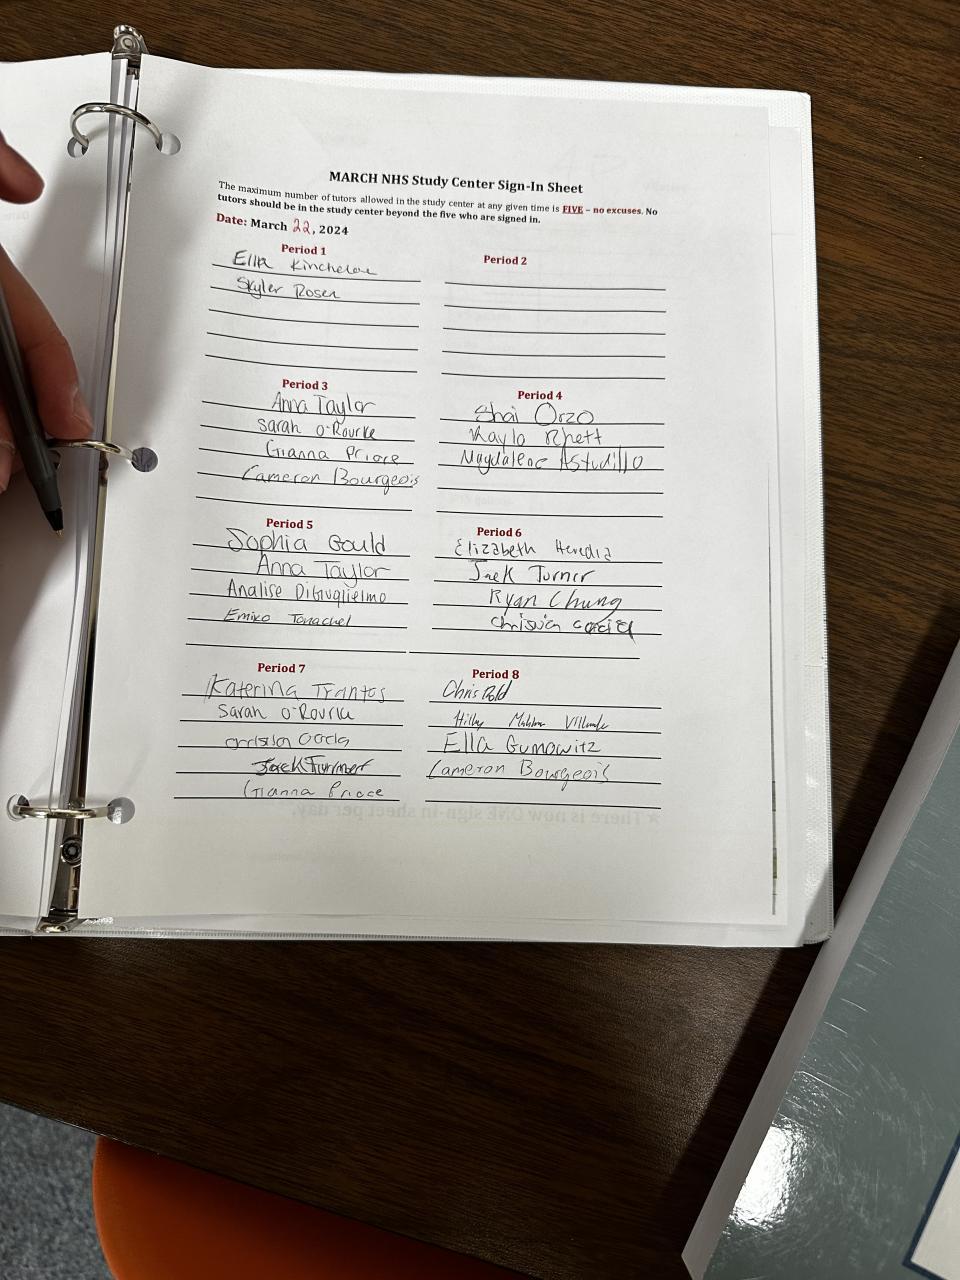 MARCH NHS Study Center Sign-In Sheet
The maximum number of tutors allowed in the study center at any given time is FIVE – no excuses. No
tutors should be in the study center beyond the five who are signed in.
Date: March 22, 2024
Period 1
Ella Kincheloe
Skyler Rosen
Period 2
Period 3
Anna Taylor
Sarah O'Rourke
Gianna Priore
Cameron Bourgeois
Period 4
Shai Orzo
Kayla Rhett
Magdalene Astudillo
Period 5
Sophia Gould
Anna Taylor
Analise DiGuglielmo
Emiko
Period 6
Elizabeth Heredia
Jack Turner
Ryan Chung
Period 7
Katerina Trantos
Sarah O'Rourke
Jack Turner
Gianna Priore
Period 8
Chris
Ella Gumowitz
Cameron Bourgeois
★There is now ONE sign-in sheet per day.